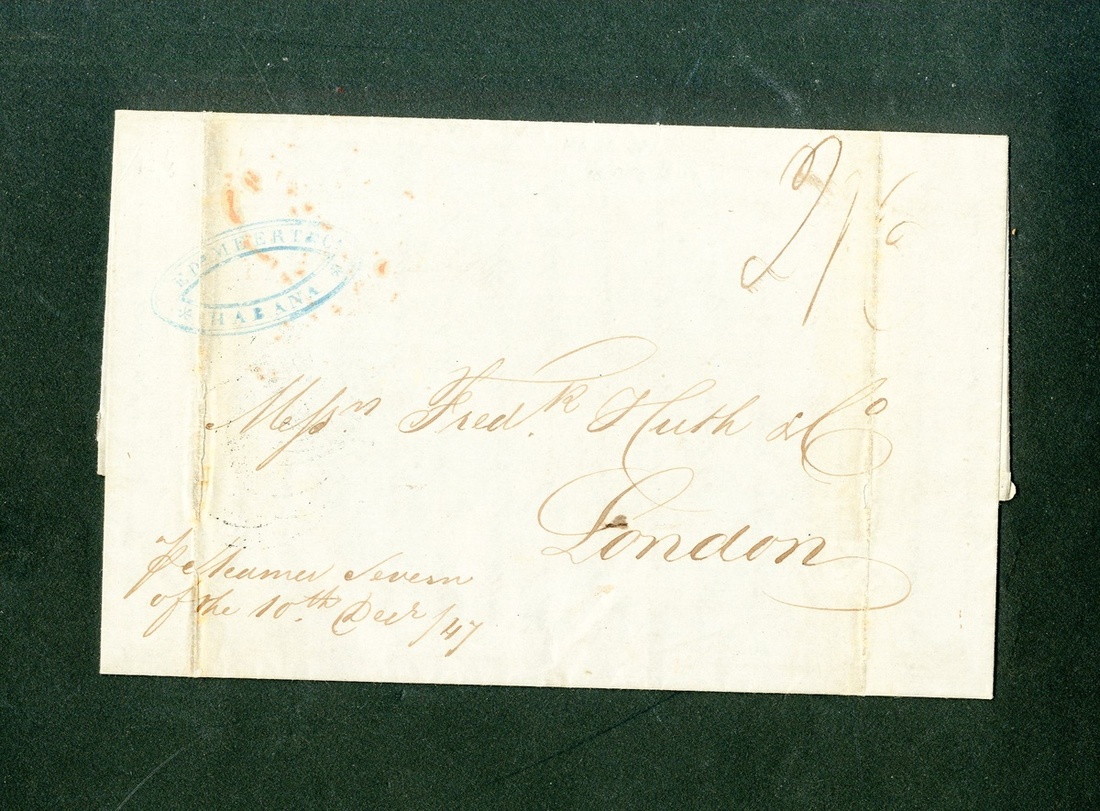 2/3
HABANA
Messrs Fredk. Huth & Co
London
p Steamer Severn
of the 10th. Decr/47